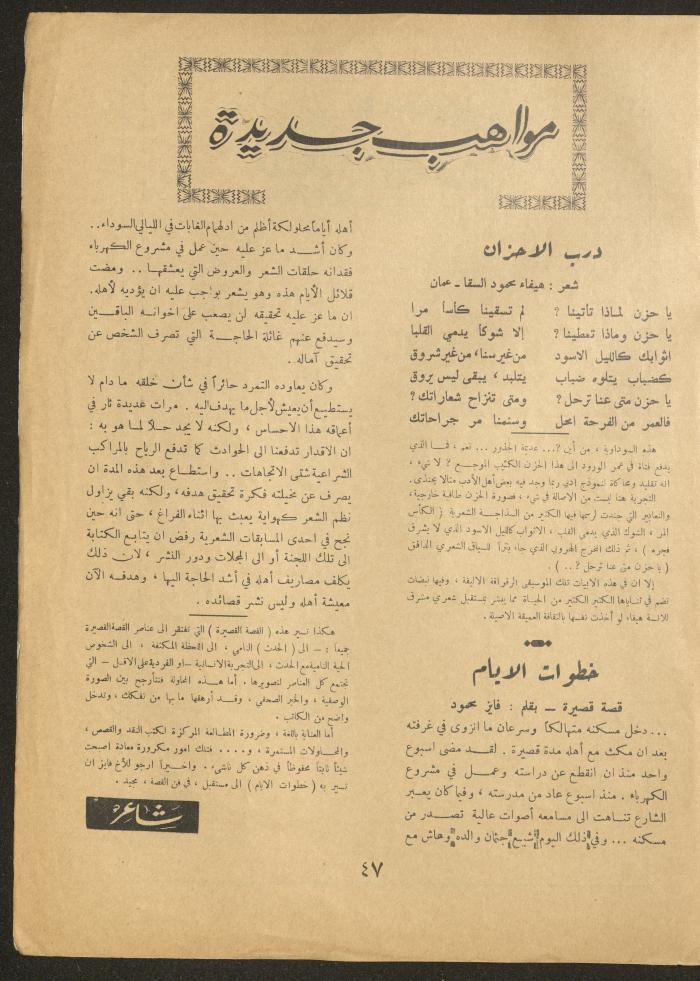 مواهب جديدة
درب الاحزان
شعر : هيفاء محمود السقا ـ عمان
يا حزن لماذا تأتينا ؟ لم تسقينا كأساً مرا
يا حزن وماذا تعطينا ؟ إلا شوكاً يدمي القلبا
اثوابك كالليل الاسود من غير سنا، من غير شروق
كضباب يتلوه ضباب يتلبد ، يبقى ليس يروق
يا حزن متى عنا ترحل ؟ ومتى تنزاح شعاراتك ؟
فالعمر من الفرحة امحل وسئمنا مر جراحاتك
هذه السوداوية ، من أين ؟... عديمة الجذور ... نعم ، فما الذي
يدفع فتاة في عمر الورود الى هذا الحزن الكثيب الموجع ؟ لا شيء ،
انه تقليد ومحاكاة لنموذج ادبي ربما وجد فيه بعض أهل الأدب مثالا يحتذى.
التجربة هنا ليست من الاصالة في شيء ، فصورة الحزن طافية خارجية،
والتعابير التي جندت لرسمها فيها الكثير من السذاجة الشعرية ( الكأس
المر ، الشوك الذي يدمي القلب ، الاثواب كالليل الاسود الذي لا يشرق
فجره ) ، ثم ذلك المخرج الهروبي الذي جاء بتراً للسياق الشعري الدافق
( يا حزن متى عنا ترحل ؟ .. ) .
إلا ان في هذه الابيات تلك الموسيقى الرقراقة الاليفة ، وفيها نبضات
تضم في ثناياها الكثير الكثير من الحياة مما يبشر بمستقبل شعري مشرق
للآنسة هيفاء لو أخذت نفسها بالثقافة العميقة الاصيلة .
خطوات الايام
قصة قصيرة ــ بقلم : فايز محمود
... دخل مسكنه متهالكاً وسرعان ما انزوى في غرفته
بعد ان مكث مع أهله مدة قصيرة . لقد مضى اسبوع
واحد منذ ان انقطع عن دراسته وعمل في مشروع
الكهرباء . منذ اسبوع عاد من مدرسته ، وفيما كان يعبر
الشارع تناهت الى مسامعه أصوات عالية تصدر من
مسكنه ... وفي ذلك اليوم أشيع جثمان والده وعاش مع
أهله أياماً محلولكة أظلم من ادلهمام الغابات في الليالي السوداء ..
وكان أشد ما عز عليه حين عمل في مشروع الكهرباء
فقدانه حلقات الشعر والعروض التي يعشقها .. ومضت
قلائل الأيام هذه وهو يشعر بواجب عليه ان يؤديه لأهله.
ان ما عز عليه تحقيقه لن يصعب على اخوانه الباقين
وسيدفع عنهم غائلة الحاجة التي تصرف الشخص عن
تحقيق آماله .
وكان يعاوده التمرد حائراً في شأن خلقه ما دام لا
يستطيع أن يعيش لأجل ما يهدف اليه . مرات عديدة ثار في
أعماقه هذا الاحساس ، ولكنه لا يجد حلاً لما هو به :
ان الاقدار تدفعنا الى الحوادث كما تدفع الرياح بالمراكب
الشراعية شتى الاتجاهات .. واستطاع بعد هذه المدة ان
يصرف عن مخيلته فكرة تحقيق هدفه، ولكنه بقي يزاول
نظم الشعر كهواية يعبث بها اثناء الفراغ ، حتى انه حين
نجح في احدى المسابقات الشعرية رفض ان يتابع الكتابة
الى تلك اللجنة أو الى المجلات ودور النشر ، لان ذلك
يكلف مصاريف أهله في أشد الحاجة اليها ، وهدفه الآن
معيشة أهله وليس نشر قصائده .
هكذا تسير هذه ( القصة القصيرة ) التي تفتقر الى عناصر القصة القصيرة
جميعاً : – الى ( الحدث ) النامي ، الى اللحظة المكثفة ، الى الشخوص
الحية النامية مع الحدث ، الى التجربة الانسانية – او الفردية على الاقل – التي
تجتمع كل العناصر لتصويرها . أما هذه المحاولة فتتأرجح بين الصورة
الوصفية ، والخبر الصحفي ، وقد أرهقها ما بها من تفكك ، وتدخل
واضح من الكاتب .
أما العناية باللغة ، وضرورة المطالعة المركزة لكتب النقد والقصص ،
والمحاولات المستمرة ، و.... فتلك امور مكرورة معادة اصبحت
شيئاً ثابتاً محفوظاً في ذهن كل ناشىء . واخيراً ارجو للأخ فايز ان
تسير به ( خطوات الايام ) الى مستقبل ، في فن القصة ، مجيد .
شاعر
٤٧